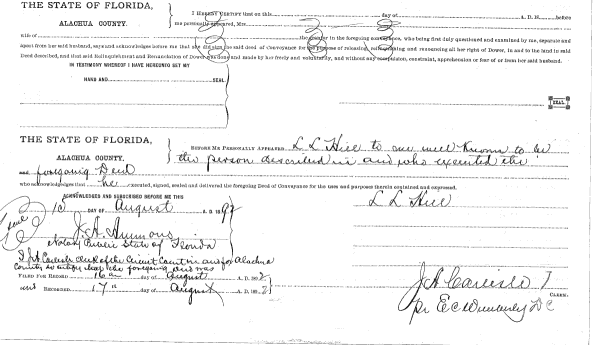 THE STATE OF FLORIDA,
ALACHUA COUNTY.
I HEREBY CERTIFY that on this day of A. D. 18 before
me personally appeared, Mrs.
wife of the grantor in the foregoing conveyance, who being first duly questioned and examined by me, separate and
apart from her said husband, says and acknowledges before me that she did sign the said deed of Conveyance for the purpose of releasing, relinquishing and renouncing all her right of Dower, in and to the land in said
Deed described, and that said Relinquishment and Renunciation of Dower was done and made by her freely and voluntarily, and without any compulsion, constraint, apprehension or fear of or from her said husband.
IN TESTIMONY WHEREOF I HAVE HEREUNTO SET MY
HAND AND SEAL
SEAL
THE STATE OF FLORIDA,
ALACHUA COUNTY.
BEFORE ME PERSONALLY APPEARED L L Hill to me well known to be
the person described in and who executed the
foregoing Deed
who acknowledges that he executed, signed, sealed and delivered the foregoing Deed of Conveyance for the uses and purposes therein contained and expressed.
ACKNOWLEDGED AND SUBSCRIBED BEFORE ME THIS
L L Hill
10 DAY OF August A. D. 1892
Seal
J. A. Ammons
Notary Public State of Florida
I J A Carlisle clerk of the Circuit Court in and for Alachua
County do certify that the foregoing deed was
FILED FOR RECORD 16th day of August A. D. 1892
and RECORDED 17th day of August A. D. 1892
J A Carlisle
CLERK.
Pr E C Wimberly D C